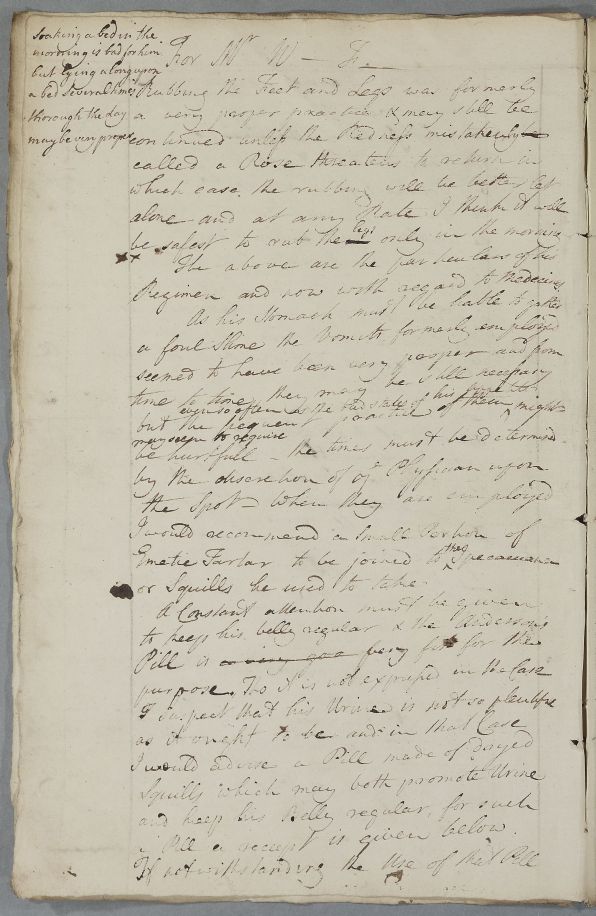 soaking a bed in the
morning is bad for him
but lying along upon
a bed several times
thorough the day
may be very proper
For Mr W - F.
Rubbing the Feet and Legs was formerly
a very proper practice & may still be
continued unless the Redness mistakenly
called a Rose threatens to return in
which case the rubbing will be better let
alone and at any Rate I think it will
be safest to rub the legs only in the morning
The above are the particulars of his
Regimen and now with regard to Medicines
As his Stomach must be liable to gather
a foul Slime the Vomits formerly employed
seemed to have been very proper and from
time to time they may be still necessary
even so often as the bad state of his appetite
but the frequent practice of them might
may seem to require
be hurtfull - the times must be determined
by the discretion of ye Physician upon
the Spot - When they are employed
I would recommend a small Portion of
Emetic Tartar to be joined to the Ipecacuana
or Squills he used to take.
A Constant attention must be given
to keep his belly regular & the Andersons
Pill is a very goo very fit for the
purpose. Tho it is not expressed in the Case
I suspect that his Urine is not so plentifull
as it ought to be and in that Case
I would advise a Pill made of Dryed
Squills which may both promote Urine
and keep his Belly regular, for such
a Pill a receipt is given below.
If notwithstanding the Use of that Pill